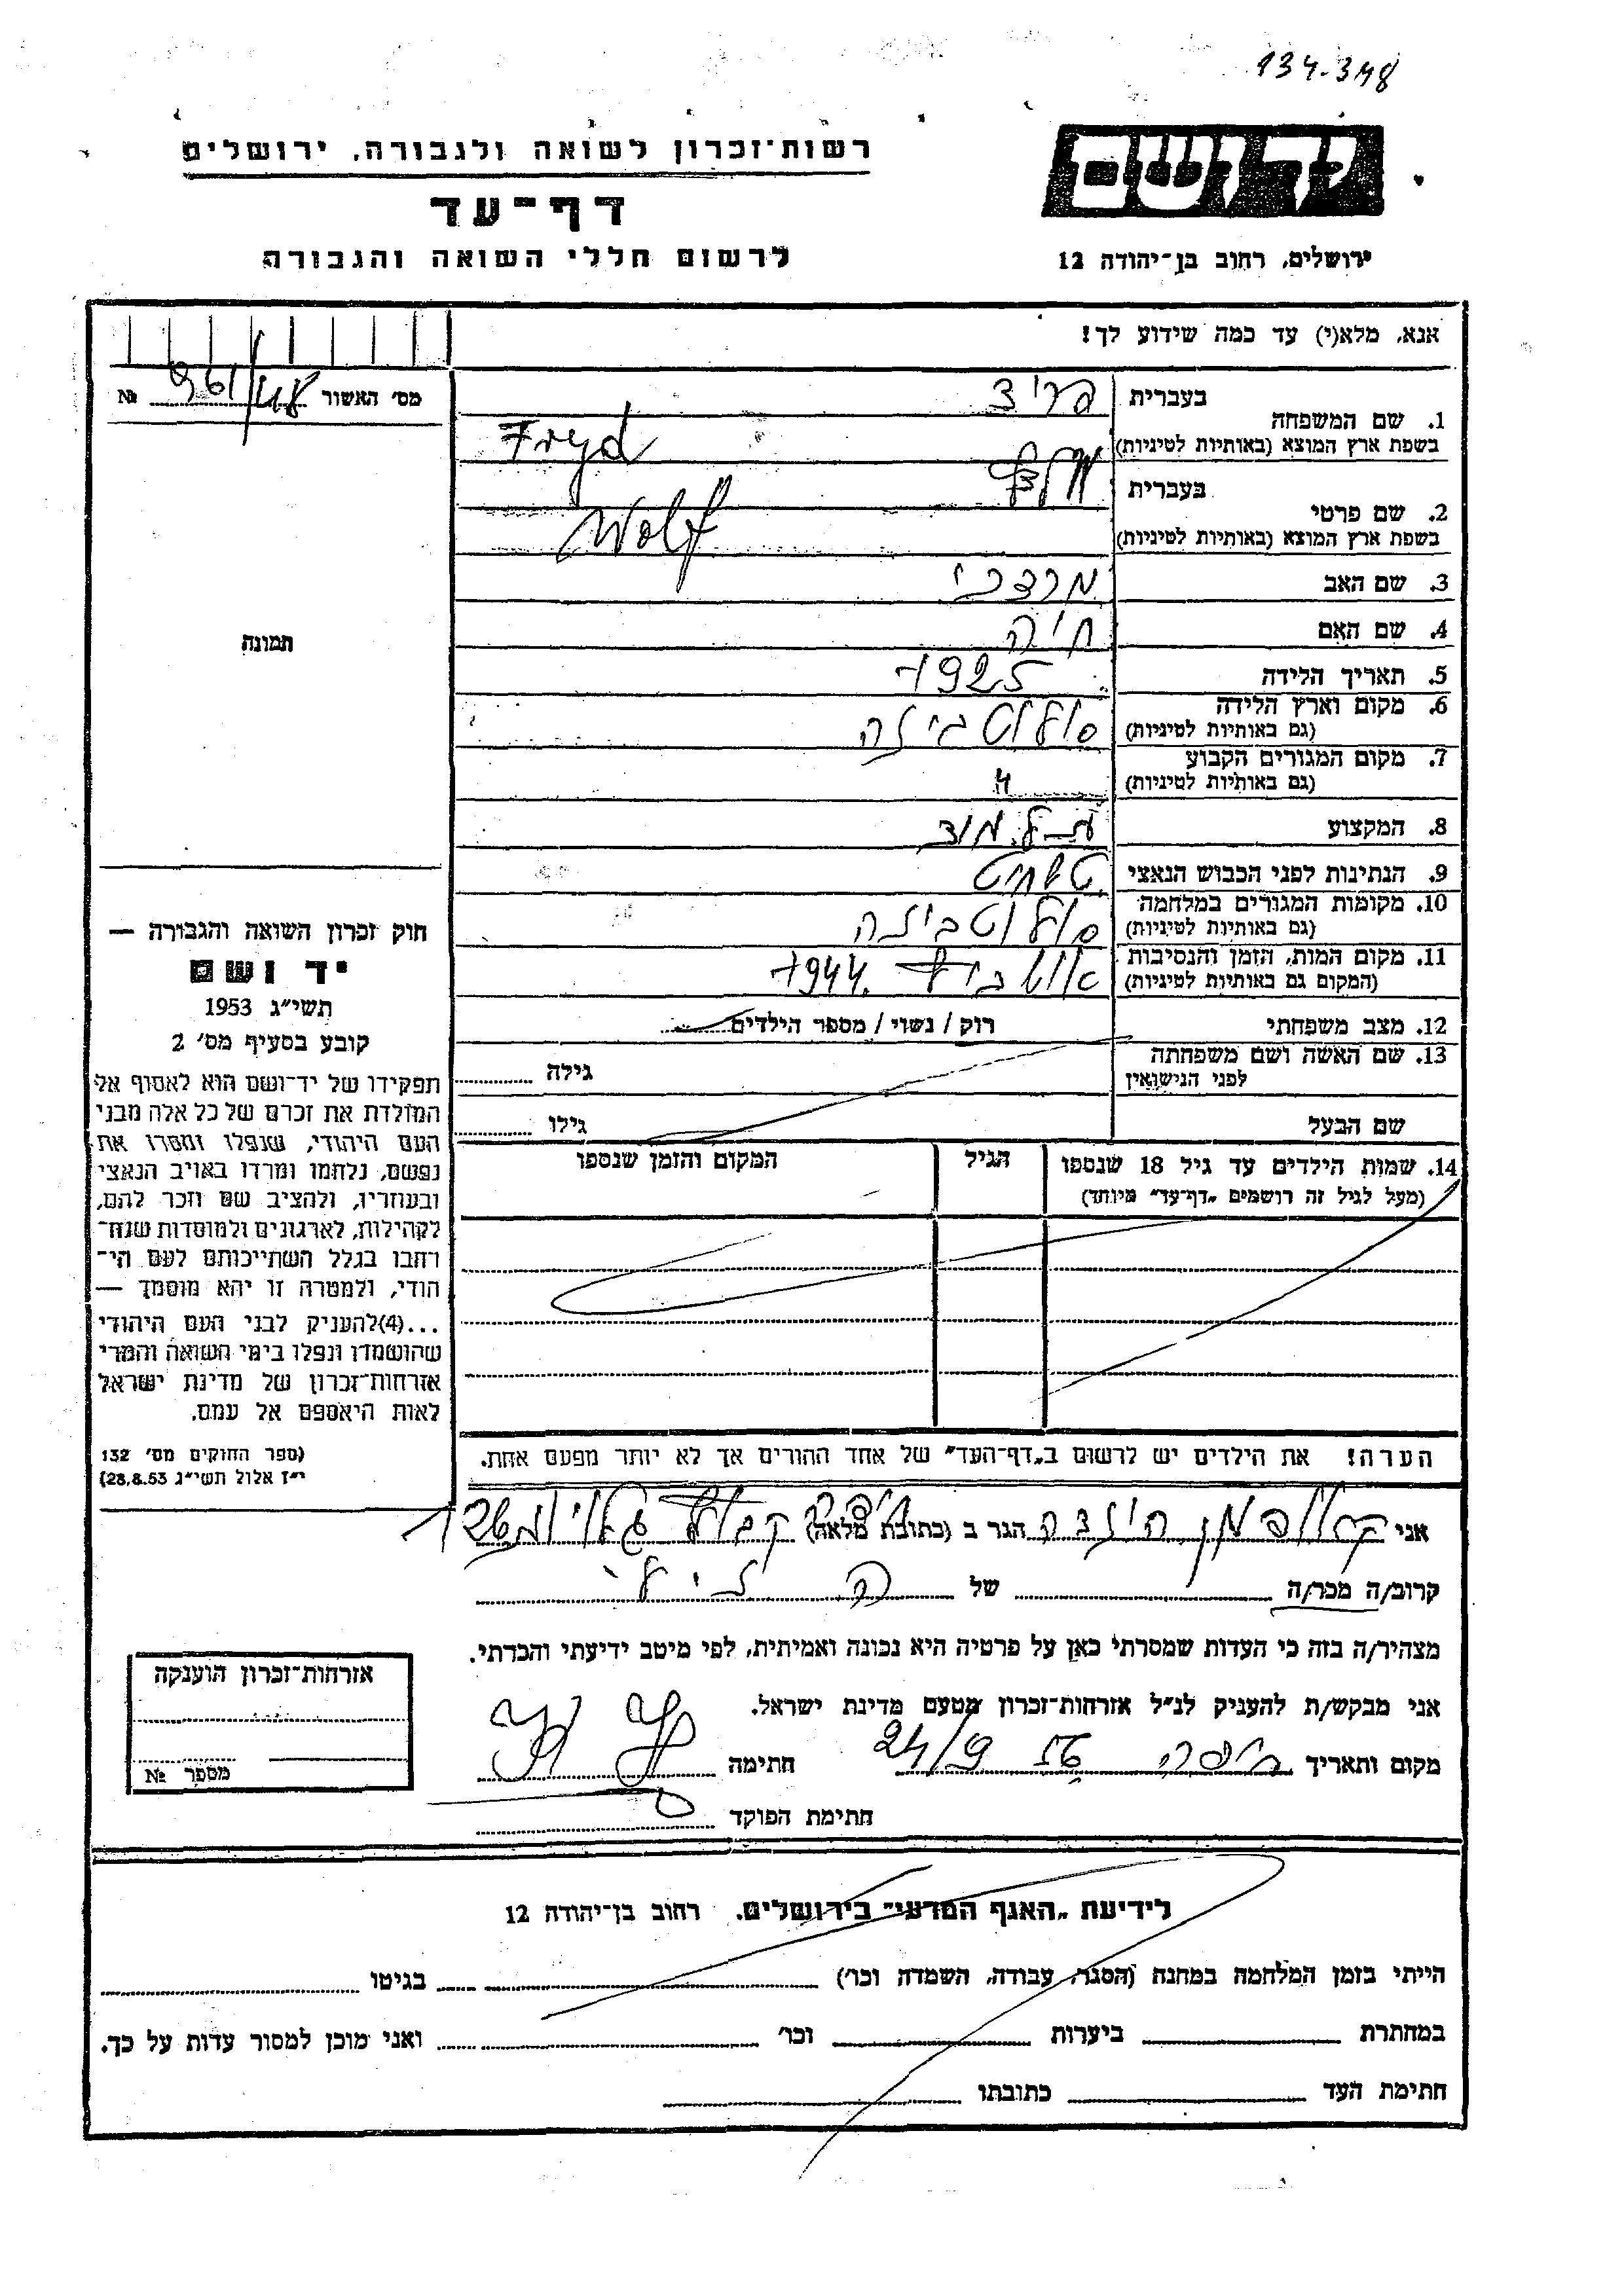 134-348
רשות-זכרון לשואה ולגבורה, ירושלים
יד ושם
דף-עד
לרשום חללי השואה והגבורה
ירושלים, רחוב בן-יהודה 12
אנא, מלא(י) עד כמה שידוע לך!
מס' האשור 961/48 №
1. שם המשפחה בעברית פריד
בשפת ארץ המוצא (באותיות לטיניות) Fryd
2. שם פרטי בעברית
בשפת ארץ המוצא (באותיות לטיניות) Wolf
3. שם האב מרדכי
4. שם האם חיה
5. תאריך הלידה 1925
6. מקום וארץ הלידה
(גם באותיות לטיניות)
7. מקום המגורים הקבוע
(גם באותיות לטיניות) "
8. המקצוע
9. הנתינות לפני הכבוש הנאצי
10. מקומות המגורים במלחמה
(גם באותיות לטיניות)
11. מקום המות, הזמן והנסיבות
(המקום גם באותיות לטיניות) 1944
12. מצב משפחתי רוק / נשוי / מספר הילדים
13. שם האשה ושם משפחתה
לפני הנישואין
גילה
שם הבעל
גילו
14. שמות הילדים עד גיל 18 שנספו
(מעל לגיל זה רושמים „דף-עד" מיוחד)
הגיל
המקום והזמן שנספו
הערה! את הילדים יש לרשום ב„דף-העד" של אחד ההורים אך לא יותר מפעם אחת.
תמונה
חוק זכרון השואה והגבורה —
יד ושם
תשי"ג 1953
קובע בסעיף מס' 2
תפקידו של יד-ושם הוא לאסוף אל
המולדת את זכרם של כל אלה מבני
העם היהודי, שנפלו ומסרו את
נפשם, נלחמו ומרדו באויב הנאצי
ובעוזריו, ולהציב שם וזכר להם,
לקהילות, לארגונים ולמוסדות שנח-
רחבו בגלל השתייכותם לעם הי-
הודי, ולמטרה זו יהא מוסמך —
...(4) להעניק לבני העם היהודי
שהושמדו ונפלו בימי השואה והמרי
אזרחות-זכרון של מדינת ישראל
לאות היאספם אל עמם.
(ספר החוקים מס' 132
י"ז אלול תשי"ג 28.8.53)
אני הגר ב (כתובת מלאה)
קרוב/ה מכר/ה של
מצהיר/ה בזה כי העדות שמסרתי כאן על פרטיה היא נכונה ואמיתית, לפי מיטב ידיעתי והכרתי.
אני מבקש/ת להעניק לנ"ל אזרחות-זכרון מטעם מדינת ישראל.
מקום ותאריך חיפה 24/9 חתימה
חתימת הפוקד
אזרחות-זכרון הוענקה
מספר №
לידיעת „האגף המדעי" בירושלים. רחוב בן-יהודה 12
הייתי בזמן המלחמה במחנה (הסגר, עבודה, השמדה וכו') בגיטו
במחתרת ביערות וכו' ואני מוכן למסור עדות על כך.
חתימת העד כתובתו